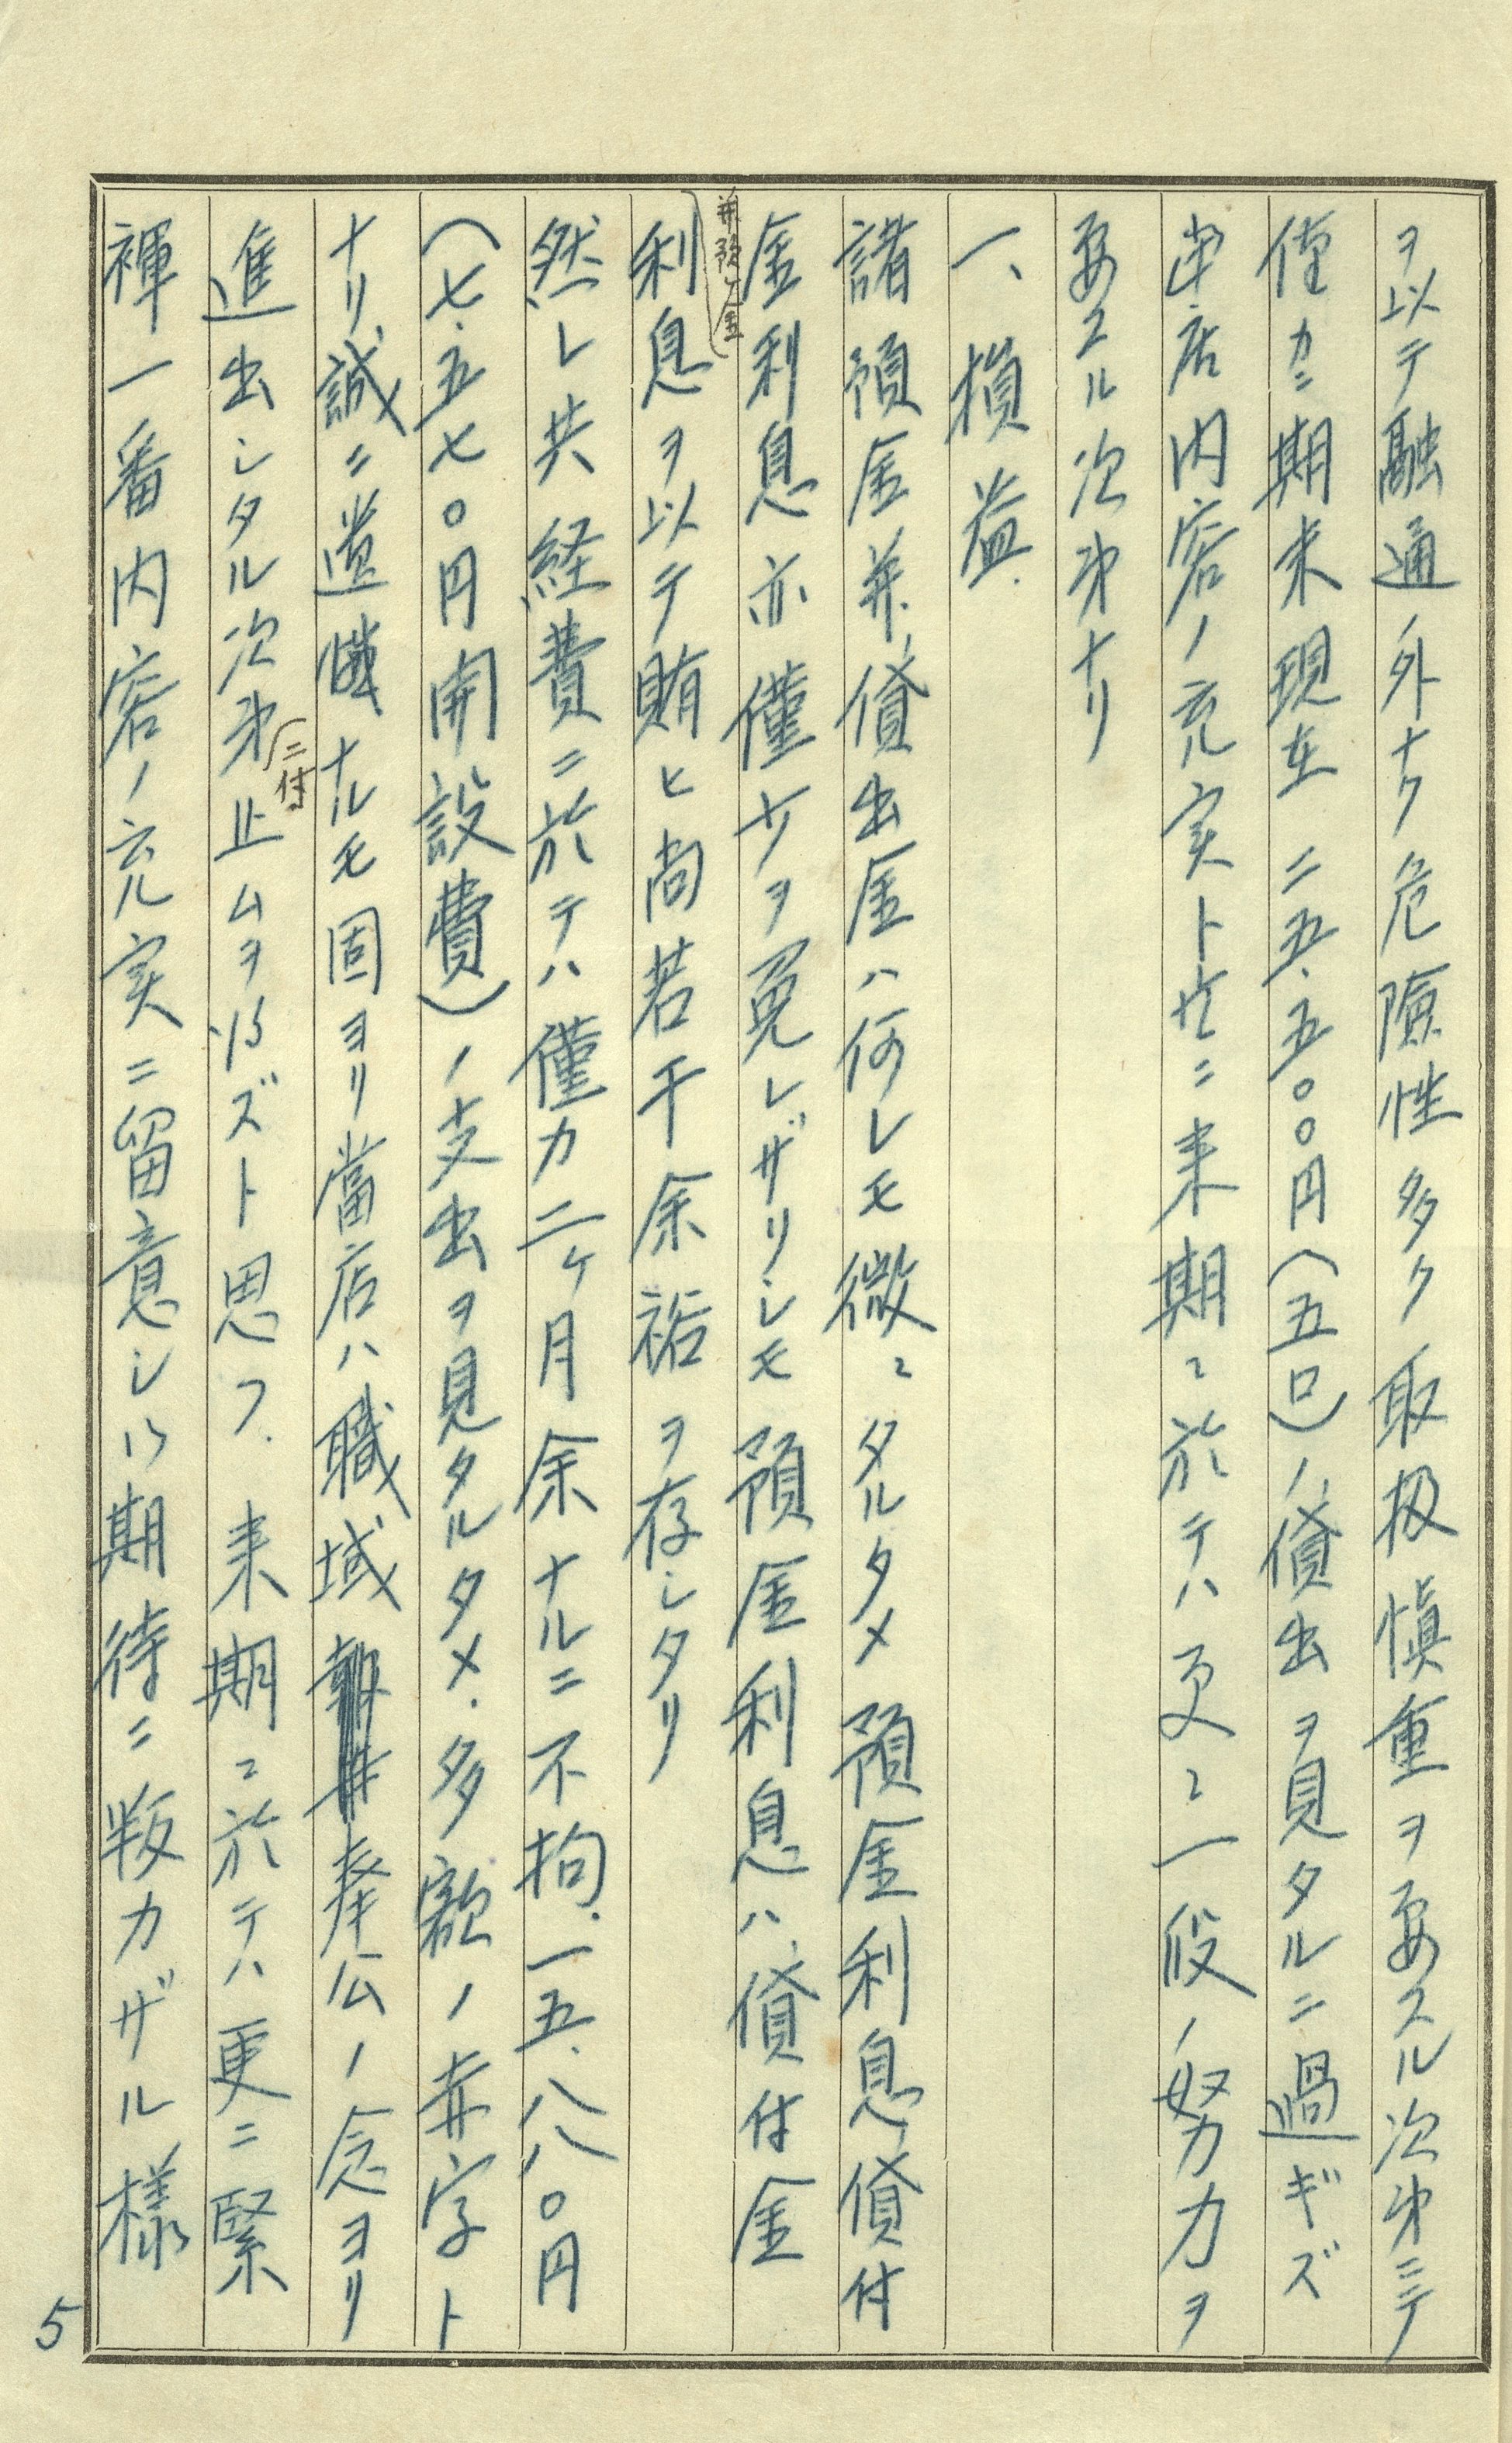 ヲ以テ融通ノ外ナク危險性多ク取扱愼重ヲ要スル次第ニテ
僅カニ期末現在二五.五〇〇円(五口)ノ貸出ヲ見タルニ過ギズ
中店内容ノ充実ト共ニ来期ニ於テハ更ニ一段ノ努力ヲ
要スル次第ナリ
一、損益.
諸預金并貸出金ハ何レモ微々タルタメ預金利息貸付
金利息亦僅少ヲ免レザリシモ預金利息ハ貸付金
并預ケ金
利息ヲ以テ賄ヒ尚若干余裕ヲ存シタリ
然レ共経費ニ於テハ僅カ二ケ月余ナルニ不拘.一五.八八〇円
(七.五七〇円開設費)ノ支出ヲ見タルタメ.多額ノ赤字ト
ナリ誠ニ遺憾ナルモ固ヨリ當店ハ職域奉公ノ念ヨリ
進出シタル次第止ムヲ得ズト思フ.来期ニ於テハ更ニ緊
ニ付
褌一番内容ノ充実ニ留意シ以テ期待ニ叛カザル様
5